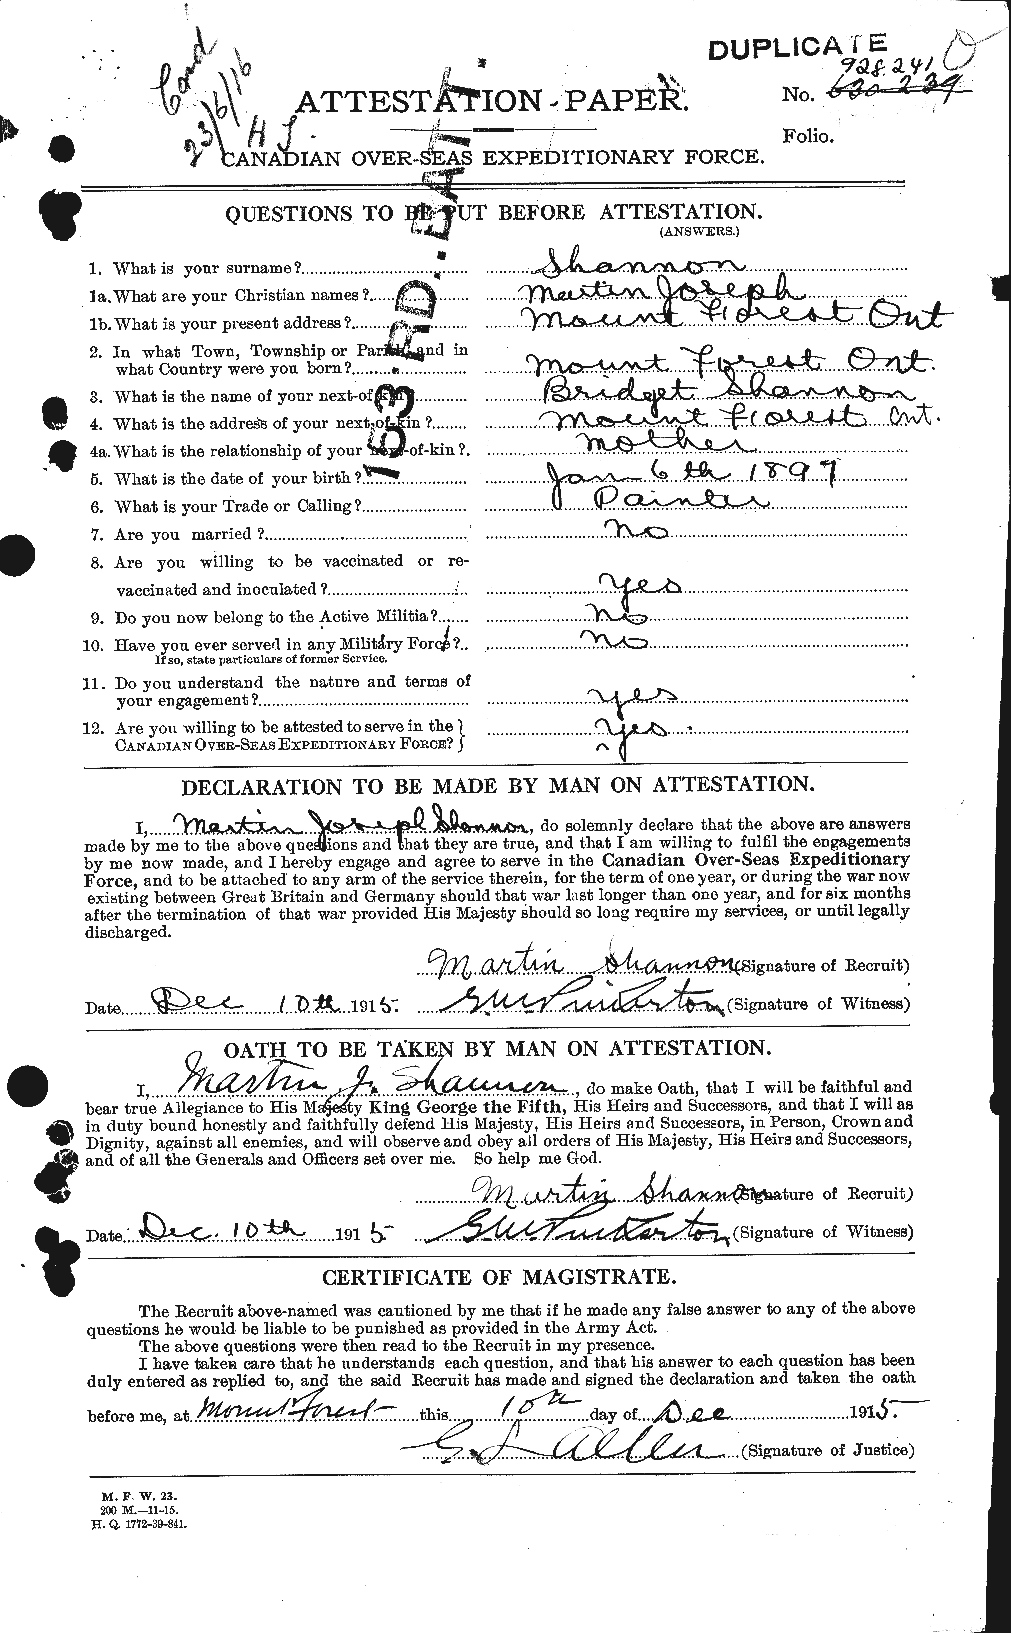 DUPLICATE
Card
23/6/16
H J.
928.241
ATTESTATION PAPER.
No. 630 239
Folio.
CANADIAN OVER-SEAS EXPEDITIONARY FORCE.
153RD. BATT.
QUESTIONS TO BE PUT BEFORE ATTESTATION.
(ANSWERS.)
1. What is your surname? Shannon
1a. What are your Christian names? Martin Joseph
1b. What is your present address? Mount Forest Ont
2. In what Town, Township or Parish, and in
what Country were you born? Mount Forest Ont.
3. What is the name of your next-of-kin? Bridget Shannon
4. What is the address of your next-of-kin? Mount Forest Ont.
4a. What is the relationship of your next-of-kin? Mother
5. What is the date of your birth? Jan 6th 1897
6. What is your Trade or Calling? Painter
7. Are you married? No
8. Are you willing to be vaccinated or re-
vaccinated and inoculated? Yes
9. Do you now belong to the Active Militia? No
10. Have you ever served in any Military Force? No
If so, state particulars of former Service.
11. Do you understand the nature and terms of
your engagement? Yes
12. Are you willing to be attested to serve in the
CANADIAN OVER-SEAS EXPEDITIONARY FORCE? Yes
DECLARATION TO BE MADE BY MAN ON ATTESTATION.
I, Martin Joseph Shannon, do solemnly declare that the above are answers
made by me to the above questions and that they are true, and that I am willing to fulfil the engagements
by me now made, and I hereby engage and agree to serve in the Canadian Over-Seas Expeditionary
Force, and to be attached to any arm of the service therein, for the term of one year, or during the war now
existing between Great Britain and Germany should that war last longer than one year, and for six months
after the termination of that war provided His Majesty should so long require my services, or until legally
discharged.
Martin Shannon (Signature of Recruit)
Date Dec 10th 1915. (Signature of Witness)
OATH TO BE TAKEN BY MAN ON ATTESTATION.
I, Martin J. Shannon, do make Oath, that I will be faithful and
bear true Allegiance to His Majesty King George the Fifth, His Heirs and Successors, and that I will as
in duty bound honestly and faithfully defend His Majesty, His Heirs and Successors, in Person, Crown and
Dignity, against all enemies, and will observe and obey all orders of His Majesty, His Heirs and Successors,
and of all the Generals and Officers set over me. So help me God.
Martin Shannon (Signature of Recruit)
Date Dec. 10th 1915. (Signature of Witness)
CERTIFICATE OF MAGISTRATE.
The Recruit above-named was cautioned by me that if he made any false answer to any of the above
questions he would be liable to be punished as provided in the Army Act.
The above questions were then read to the Recruit in my presence.
I have taken care that he understands each question, and that his answer to each question has been
duly entered as replied to, and the said Recruit has made and signed the declaration and taken the oath
before me, at Mount Forest this 10th day of Dec 1915.
G. L. Allen (Signature of Justice)
M. F. W. 23.
200 M.—11-15.
H. Q. 1772-39-841.